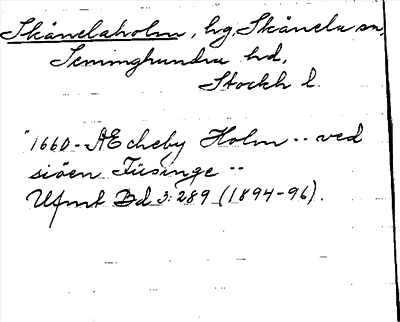 Skånelaholm, hg, Skånela sn,
Seminghundra hd,
Stockh l.
"1660 - AEcheby Holm -- ved
siöen Füsinge --
Ufmt Bd 3:289 (1894-96).